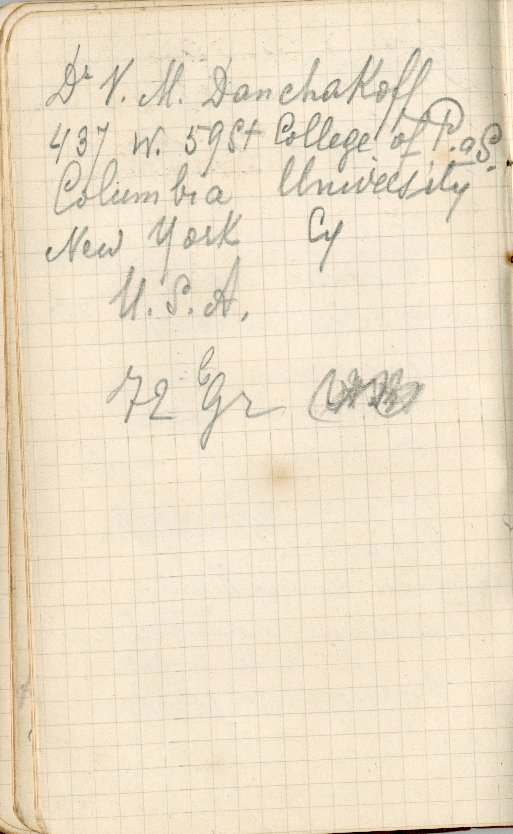 Dr V. M. Danchakoff
437 W. 59 St College of P. a S.
Columbia University
New York Cy
U. S. A.
72 Gr